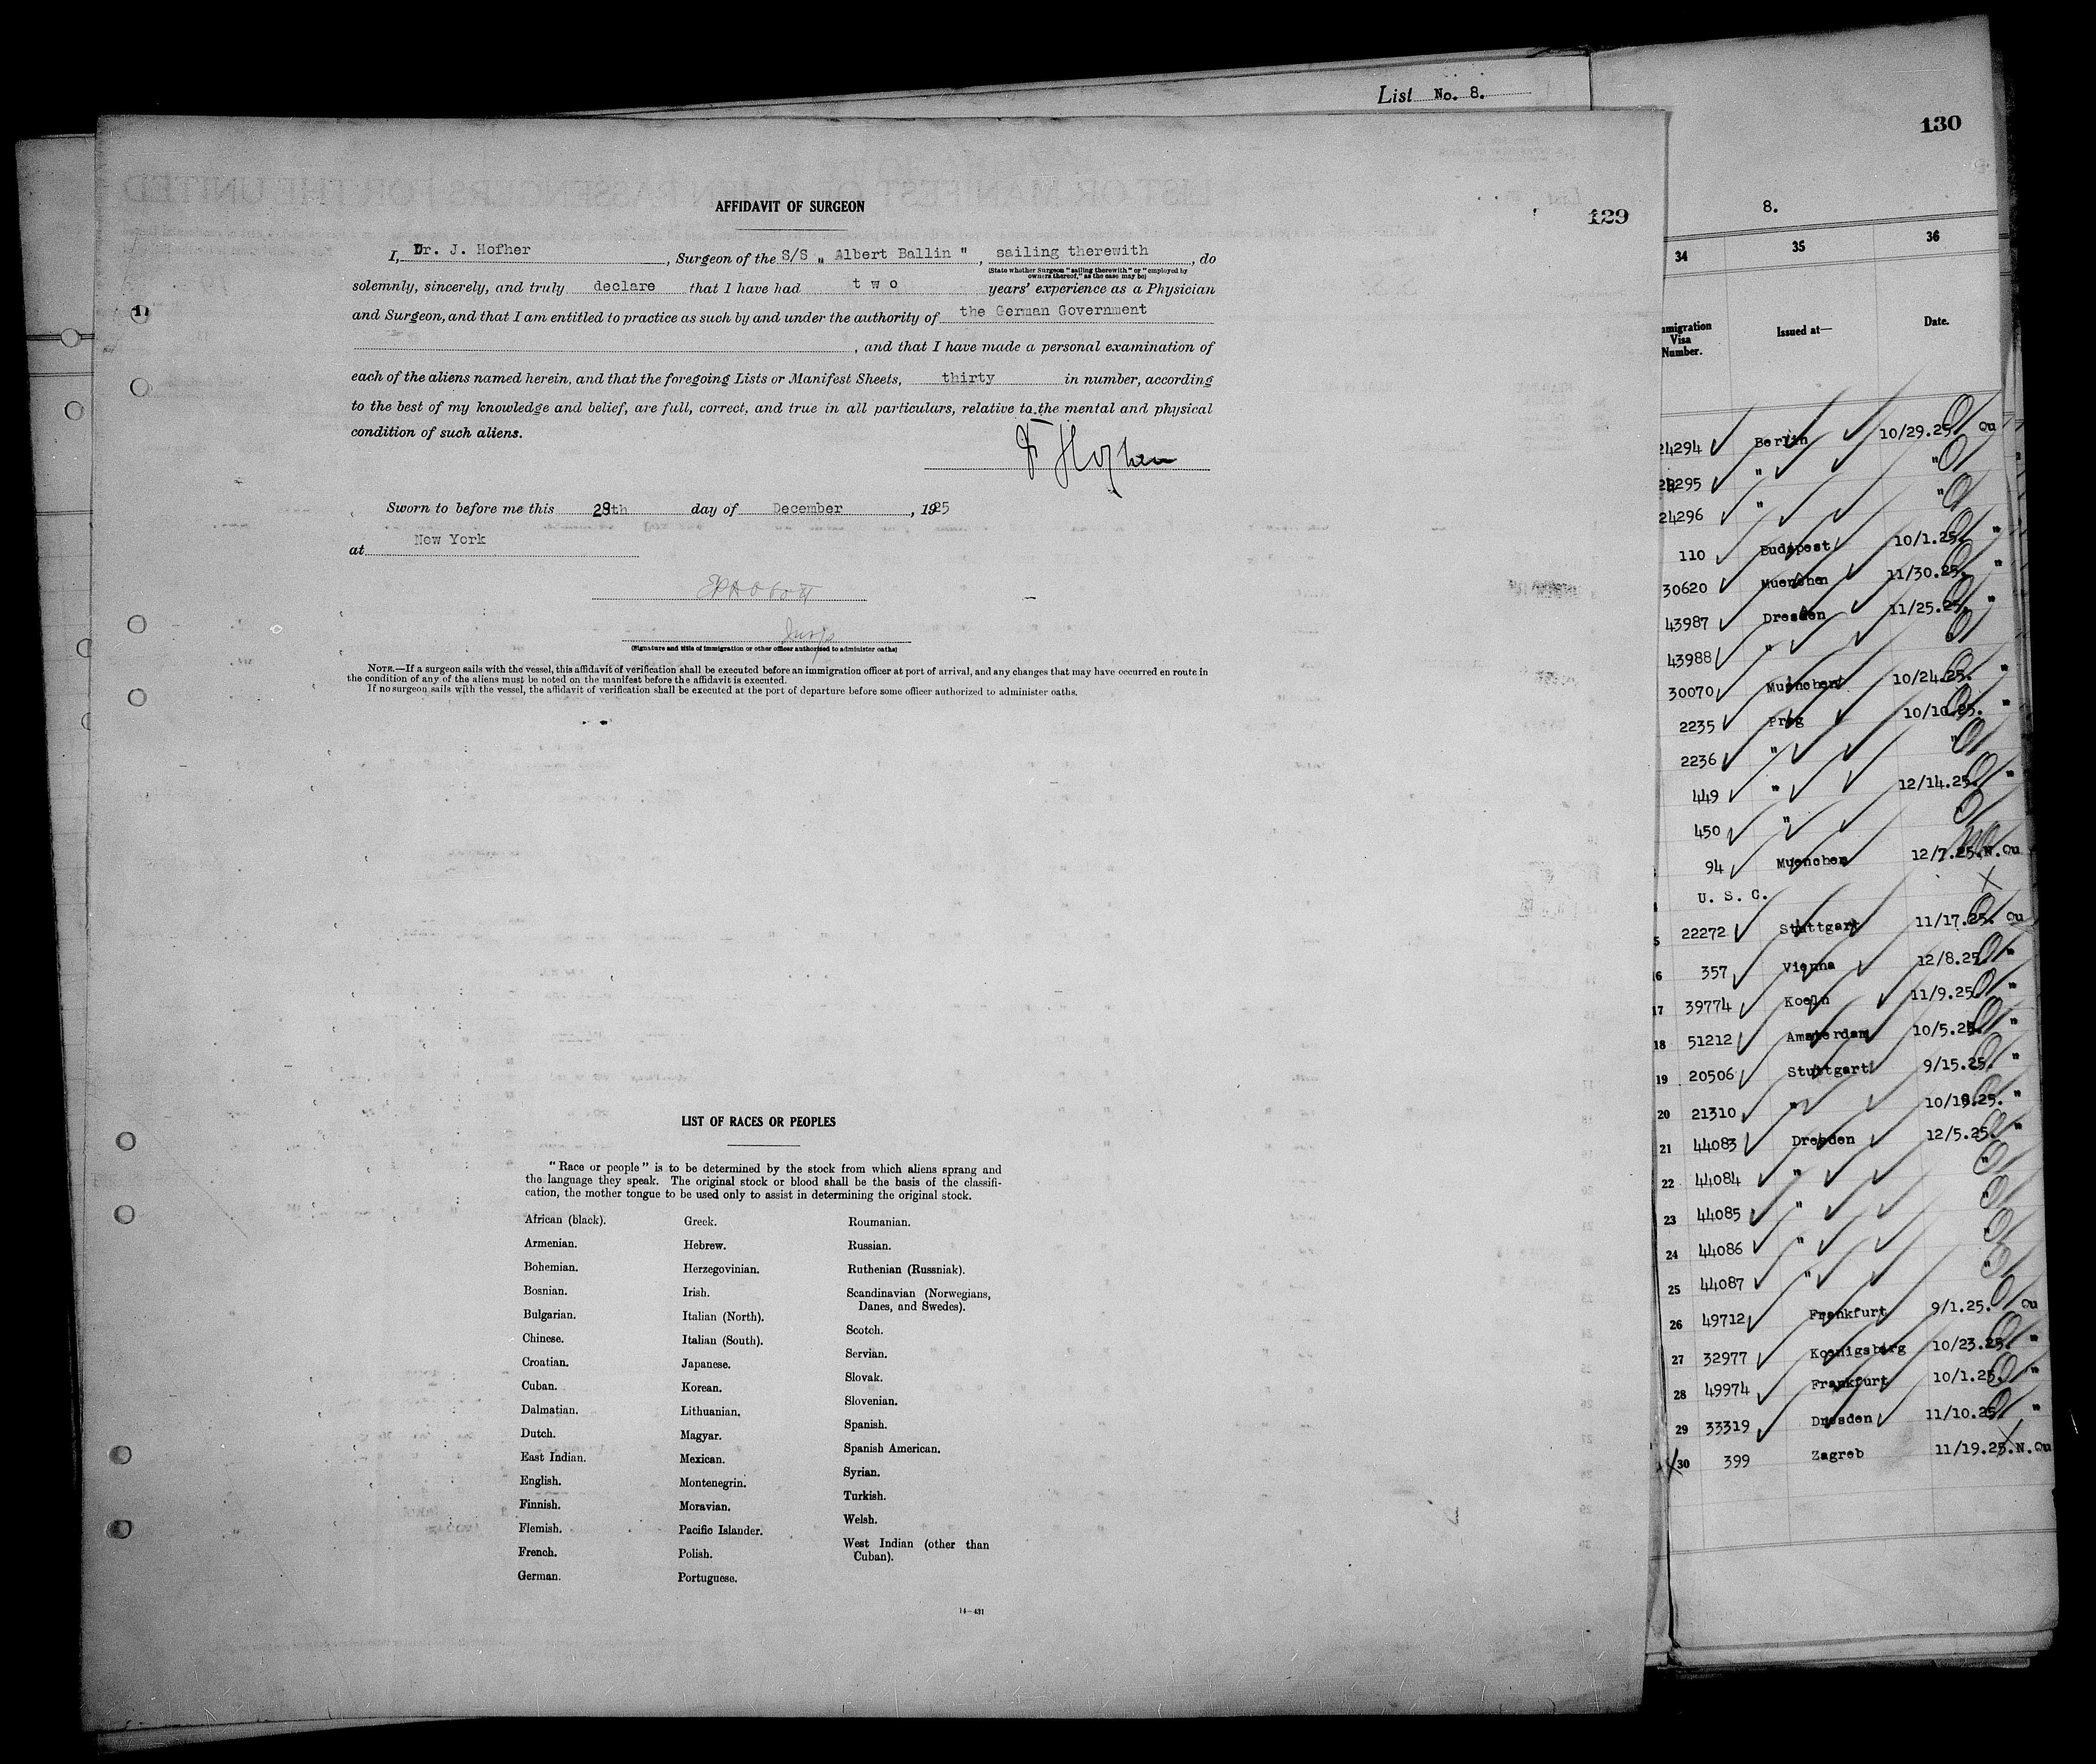 List No. 8.
130
AFFIDAVIT OF SURGEON
129
I, Dr. J. Hofher, Surgeon of the S/S „ Albert Ballin ", sailing therewith, do
(State whether Surgeon "sailing therewith" or "employed by
owners thereof," as the case may be)
solemnly, sincerely, and truly declare that I have had two years' experience as a Physician
and Surgeon, and that I am entitled to practice as such by and under the authority of the German Government
, and that I have made a personal examination of
each of the aliens named herein, and that the foregoing Lists or Manifest Sheets, thirty in number, according
to the best of my knowledge and belief, are full, correct, and true in all particulars, relative to the mental and physical
condition of such aliens.
Sworn to before me this 28th day of December, 1925
at New York
(Signature and title of immigration or other officer authorized to administer oaths)
NOTE.—If a surgeon sails with the vessel, this affidavit of verification shall be executed before an immigration officer at port of arrival, and any changes that may have occurred en route in
the condition of any of the aliens must be noted on the manifest before the affidavit is executed.
If no surgeon sails with the vessel, the affidavit of verification shall be executed at the port of departure before some officer authorized to administer oaths.
LIST OF RACES OR PEOPLES
"Race or people" is to be determined by the stock from which aliens sprang and
the language they speak. The original stock or blood shall be the basis of the classifi-
cation, the mother tongue to be used only to assist in determining the original stock.
African (black).
Armenian.
Bohemian.
Bosnian.
Bulgarian.
Chinese.
Croatian.
Cuban.
Dalmatian.
Dutch.
East Indian.
English.
Finnish.
Flemish.
French.
German.
Greek.
Hebrew.
Herzegovinian.
Irish.
Italian (North).
Italian (South).
Japanese.
Korean.
Lithuanian.
Magyar.
Mexican.
Montenegrin.
Moravian.
Pacific Islander.
Polish.
Portuguese.
Roumanian.
Russian.
Ruthenian (Russniak).
Scandinavian (Norwegians,
Danes, and Swedes).
Scotch.
Servian.
Slovak.
Slovenian.
Spanish.
Spanish American.
Syrian.
Turkish.
Welsh.
West Indian (other than
Cuban).
14—431
8.
34 35 36
Visa
Number. Issued at— Date.
24294 Berlin 10/29.25. Qu
24295 " "
24296 " "
110 Budapest 10/1.25. "
30620 Muenchen 11/30.25. "
43987 Dresden 11/25.25. "
43988 " "
30070 Muenchen 10/24.25. "
2235 Prag 10/10.25. "
2236 " "
449 " 12/14.25. "
450 " "
94 Muenchen 12/7.25. N.Qu
U. S. C.
22272 Stuttgart 11/17.25. Qu
357 Vienna 12/8.25. "
17 39774 Koeln 11/9.25. "
18 51212 Amsterdam 10/5.25. "
19 20506 Stuttgart 9/15.25. "
20 21310 " 10/19.25. "
21 44083 Dresden 12/5.25. "
22 44084 " "
23 44085 " "
24 44086 " "
25 44087 " "
26 49712 Frankfurt 9/1.25. Qu
27 32977 Koenigsberg 10/23.25. "
28 49974 Frankfurt 10/1.25. "
29 33319 Dresden 11/10.25. "
30 399 Zagreb 11/19.25. N.Qu